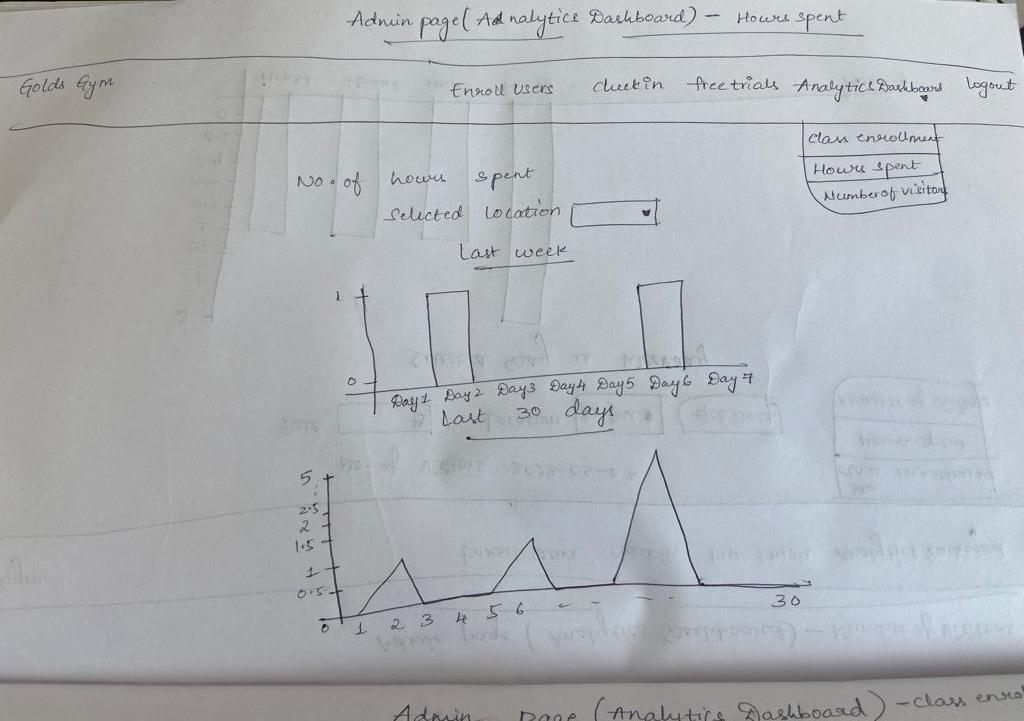 Admin page (Adnalytics Dashboard) - Hours spent
Golds Gym Enroll Users checkin free trials Analytics Dashboard logout
class enrollment
Hours spent
Number of visitors
No. of hours spent
Selected location
Last week
1
0
Day1 Day2 Day3 Day4 Day5 Day6 Day7
Last 30 days
5
2.5
2
1.5
1
0.5
0 1 2 3 4 5 6 - - - - 30
Admin page (Analytics Dashboard) - class enrol